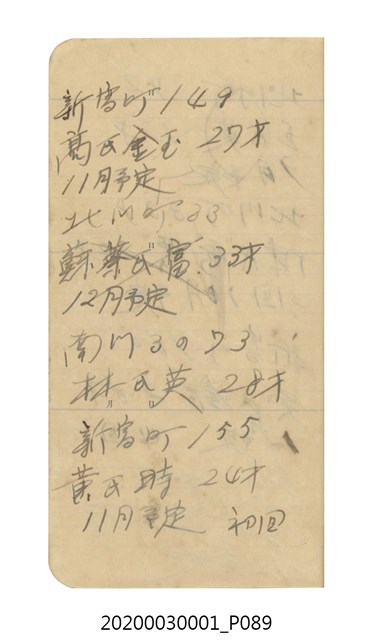 新富町149
高氏金玉 27才
11月予定
北川町33
蘇蔡氏富 33才
12月予定
南門3の73
林氏英 28才
新富町155
黄氏時 24才
11月予定 初回
20200030001_P089